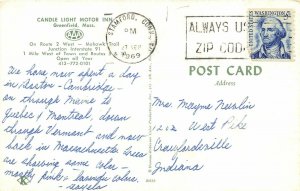 CANDLE LIGHT MOTOR INN
Greenfield, Mass.
AAA
On Route 2 West - Mohawk Trail
Junction Interstate 91
1 Mile West of Town and Routes 5 &
Open all Year
413-772-0101
STAMFORD, CONN.
PM
SEP
1969
ALWAYS USE
ZIP CODE
WASHINGTON
5¢
POST CARD
Address
We have now spent a day
in Boston - Cambridge -
on through Maine to
Quebec & Montreal, down
through Vermont and now
back in Massachusetts. Trees
are showing some color -
mostly pink & lavender colors,
Mrs. Mayne
1212 West Pike
Crawfordsville
Indiana